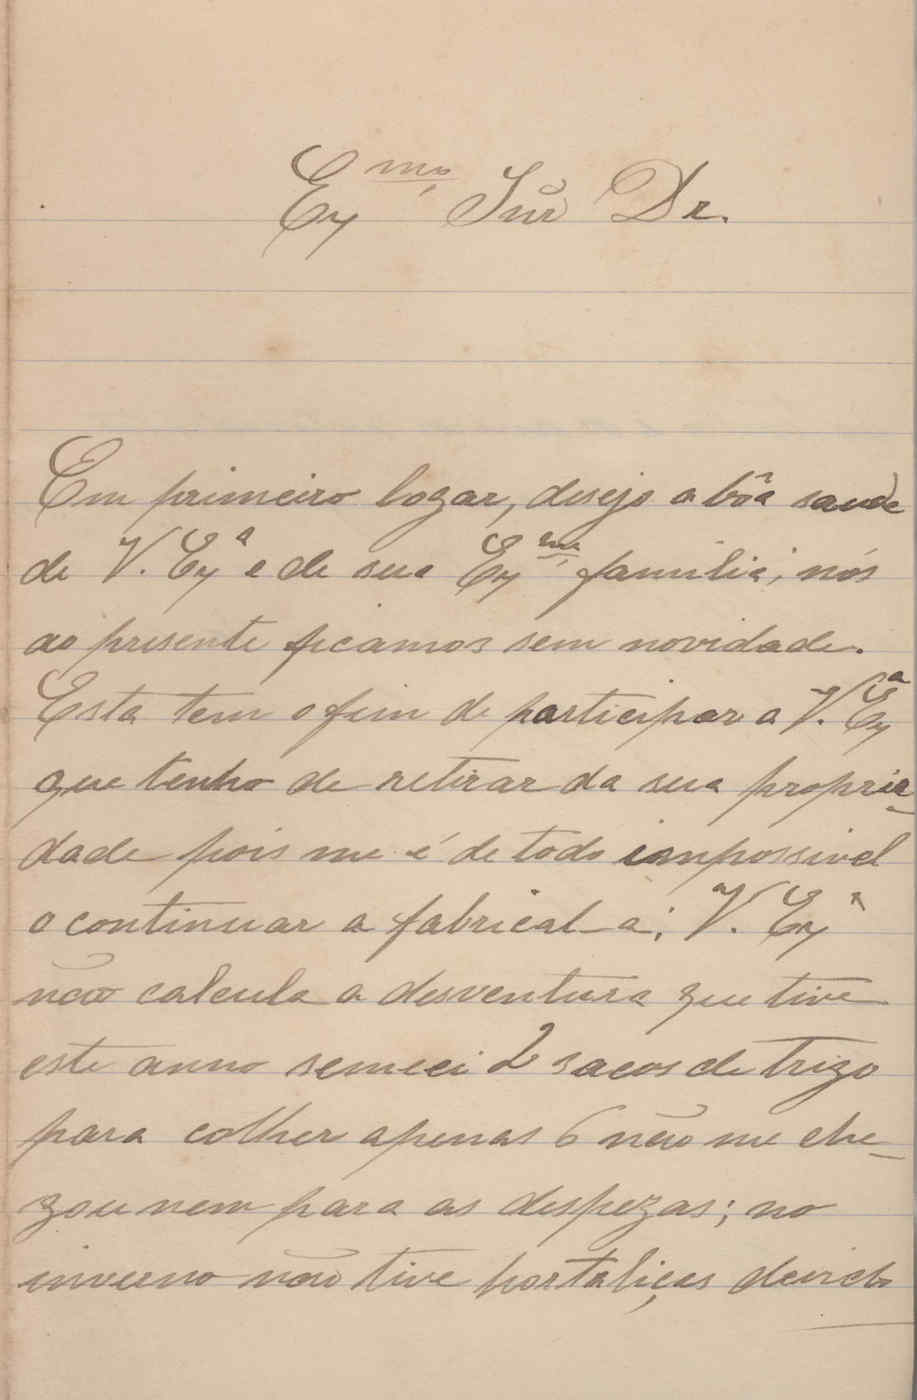 Exmo Snr Dr.
Em primeiro logar, desejo a bôa saude
de V. Exa e de sua Exma familia; nós
ao presente ficamos sem novidade.
Esta tem o fim de participar a V. Exa
que tenho de retirar da sua proprie-
dade pois me é de todo impossivel
o continuar a fabrical-a; V. Exa
não calcula a desventura que tive
este anno semeei 2 sacos de trigo
para colher apenas 6 não me che-
gou nem para as despezas; no
inverno não tive hortaliças devido